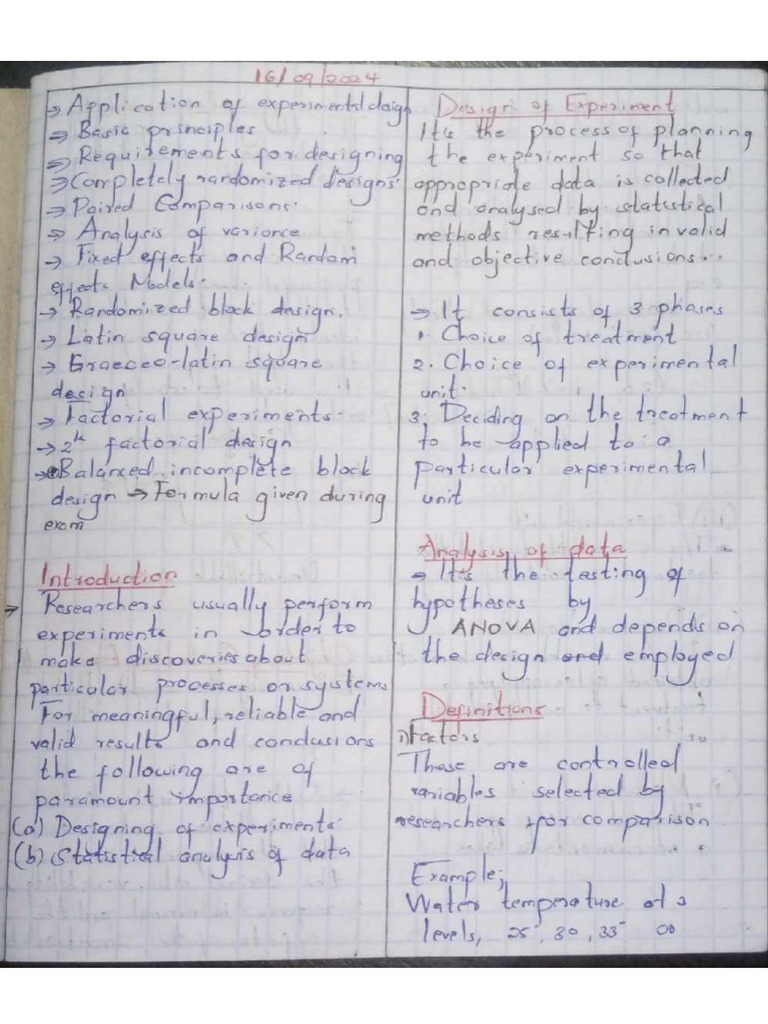 16/09/2024
→ Application of experimental design
→ Basic principles
→ Requirements for designing
→ Completely randomized designs.
→ Paired Comparisons.
→ Analysis of variance
→ Fixed effects and Random
effects Models.
→ Randomized block design.
→ Latin square design
→ Graeceo-latin square
design
→ Factorial experiments.
→ 2^k factorial design
→ Balanced incomplete block
design → Formula given during
exam
Introduction
→ Researchers usually perform
experiments in order to
make discoveries about
particular processes or systems
For meaningful, reliable and
valid results and conclusions
the following are of
paramount importance
(a) Designing of experiments
(b) Statistical analysis of data
Design of Experiment
It's the process of planning
the experiment so that
appropriate data is collected
and analysed by statistical
methods resulting in valid
and objective conclusions..
→ It consists of 3 phases
1. Choice of treatment
2. Choice of experimental
unit.
3. Deciding on the treatment
to be applied to a
particular experimental
unit
Analysis of data
→ It's the testing of
hypotheses by
ANOVA and depends on
the design and employed
Definitions
i) Factors
These are controlled
variables selected by
researchers for comparison
Example;
Water temperature at 3
levels, 25°, 30, 33°